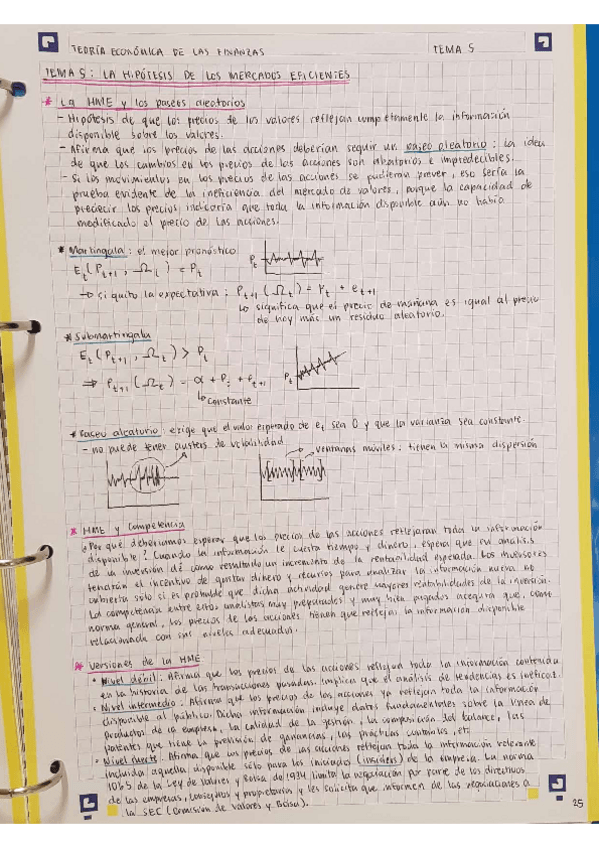 TEORÍA ECONÓMICA DE LAS FINANZAS TEMA 5
TEMA 5: LA HIPÓTESIS DE LOS MERCADOS EFICIENTES
* La HME y los paseos aleatorios
- Hipótesis de que los precios de los valores reflejan completamente la información
disponible sobre los valores.
- Afirma que los precios de las acciones deberían seguir un paseo aleatorio: la idea
de que los cambios en los precios de las acciones son aleatorios e impredecibles.
- Si los movimientos en los precios de las acciones se pudieran prever, eso sería la
prueba evidente de la ineficiencia del mercado de valores, porque la capacidad de
predecir los precios indicaría que toda la información disponible aún no había
modificado el precio de las acciones.
* Martingala: el mejor pronóstico
Et(Pt+1, Ωt) = Pt
Pt
→ si quito la expectativa: Pt+1(Ωt) = Pt + et+1
↳ significa que el precio de mañana es igual al precio
de hoy más un residuo aleatorio.
* Submartingala
Et(Pt+1, Ωt) > Pt
Pt
⇒ Pt+1(Ωt) = α + Pt + et+1
↳ constante
* Paseo aleatorio: exige que el valor esperado de et sea 0 y que la varianza sea constante.
- no puede tener clusters de volatilidad
ventanas móviles: tienen la misma dispersión
* HME y competencia
¿Por qué deberíamos esperar que los precios de las acciones reflejaran toda la información
disponible? Cuando la información le cuesta tiempo y dinero, espera que su análisis
de la inversión dé como resultado un incremento de la rentabilidad esperada. Los inversores
tendrán el incentivo de gastar dinero y recursos para analizar la información nueva
cubierta sólo si es probable que dicha actividad genere mayores rentabilidades de la inversión.
La competencia entre estos analistas muy preparados y muy bien pagados asegura que, como
norma general, los precios de las acciones tienen que reflejar la información disponible
relacionada con sus niveles adecuados.
* Versiones de la HME
• Nivel débil: Afirma que los precios de las acciones reflejan toda la información contenida
en la historia de las transacciones pasadas. Implica que el análisis de tendencias es ineficaz.
• Nivel intermedio: Afirma que los precios de las acciones ya reflejan toda la información
disponible al público. Dicha información incluye datos fundamentales sobre la línea de
productos de la empresa, la calidad de la gestión, la composición del balance, las
patentes que tiene la previsión de ganancias, las prácticas contables, etc.
• Nivel fuerte: Afirma que los precios de las acciones reflejan toda la información relevante
incluida aquella disponible sólo para los iniciados (insiders) de la empresa. La norma
10b5 de la Ley de Valores y Bolsa de 1934 limita la negociación por parte de los directivos
de las empresas, consejeros y propietarios y les solicita que informen de las negociaciones a
la SEC (Comisión de Valores y Bolsa).
25